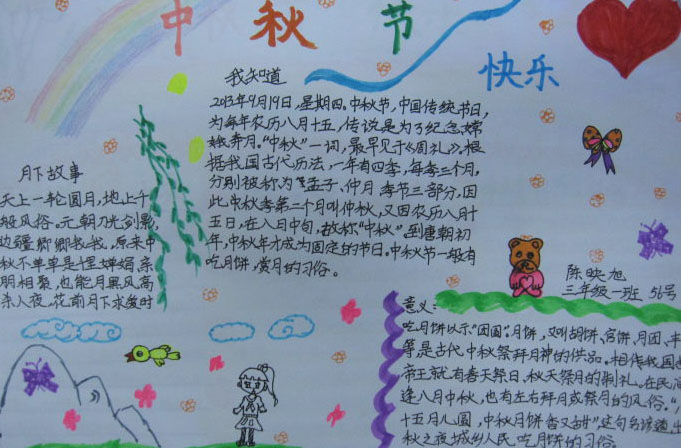 中秋节
快乐
我知道
2013年9月19日,星期四。中秋节,中国传统节日,
为每年农历八月十五,传说是为了纪念嫦
娥奔月。“中秋”一词,最早见于《周礼》,根
据我国古代历法,一年有四季,每季三个月,
分别被称为孟子、仲月季节三部分,因
此中秋季第二个月叫仲秋,又因农历八月十
五日,在八月中旬,故称“中秋”,到唐朝初
年,中秋年才成为固定的节日。中秋节一般有
吃月饼,赏月的习俗。
月下故事
天上一轮圆月,地上千
般风俗。元朝刀光剑影,
边疆卿卿我我,原来中
秋不单单是婵娟,亲
朋相聚,也能月黑风高
杀入夜,花前月下水度时
陈映旭
三年级一班 51号
意义:
吃月饼以示“团圆”。月饼,又叫胡饼、宫饼、月团、丰
等,是古代中秋祭拜月神的供品。相传我国
帝王,就有春天祭日,秋天祭月的制礼。在民间
逢八月中秋,也有左右拜月或祭月的风俗。“
十五月儿圆,中秋月饼香又甜”,这句名谚道出
秋之夜城乡人民吃月饼的习俗。